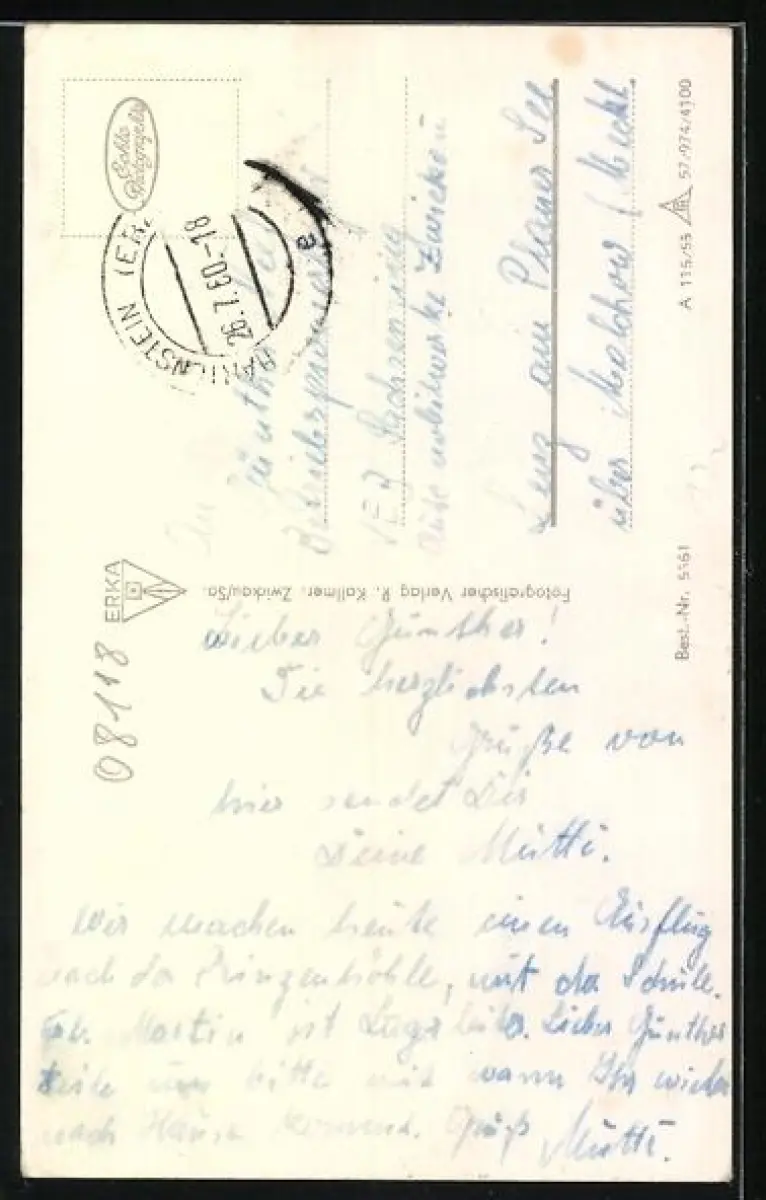 Echte
Photographie
HARTENSTEIN (ER
26.7.60.-18
a
An
Günther
Betriebsferienlager
VEB Sachsenring
Automobilwerke Zwickau
Lenz am Plauer See
über Malchow (Meckl.
A 115/55 57/974/4100
Best.-Nr. 5561
Fotografischer Verlag R. Kallmer, Zwickau/Sa.
ERKA
08118
Lieber Günther!
Die herzlichsten
Grüße von
hier sendet Dir
Deine Mutti.
Wir machen heute einen Ausflug
nach der Prinzenhöhle, mit der Schule.
Martin ist Lugsleiter. Lieber Günther
teile uns bitte mit wann Ihr wieder
nach Hause kommt. Gruß Mutti.